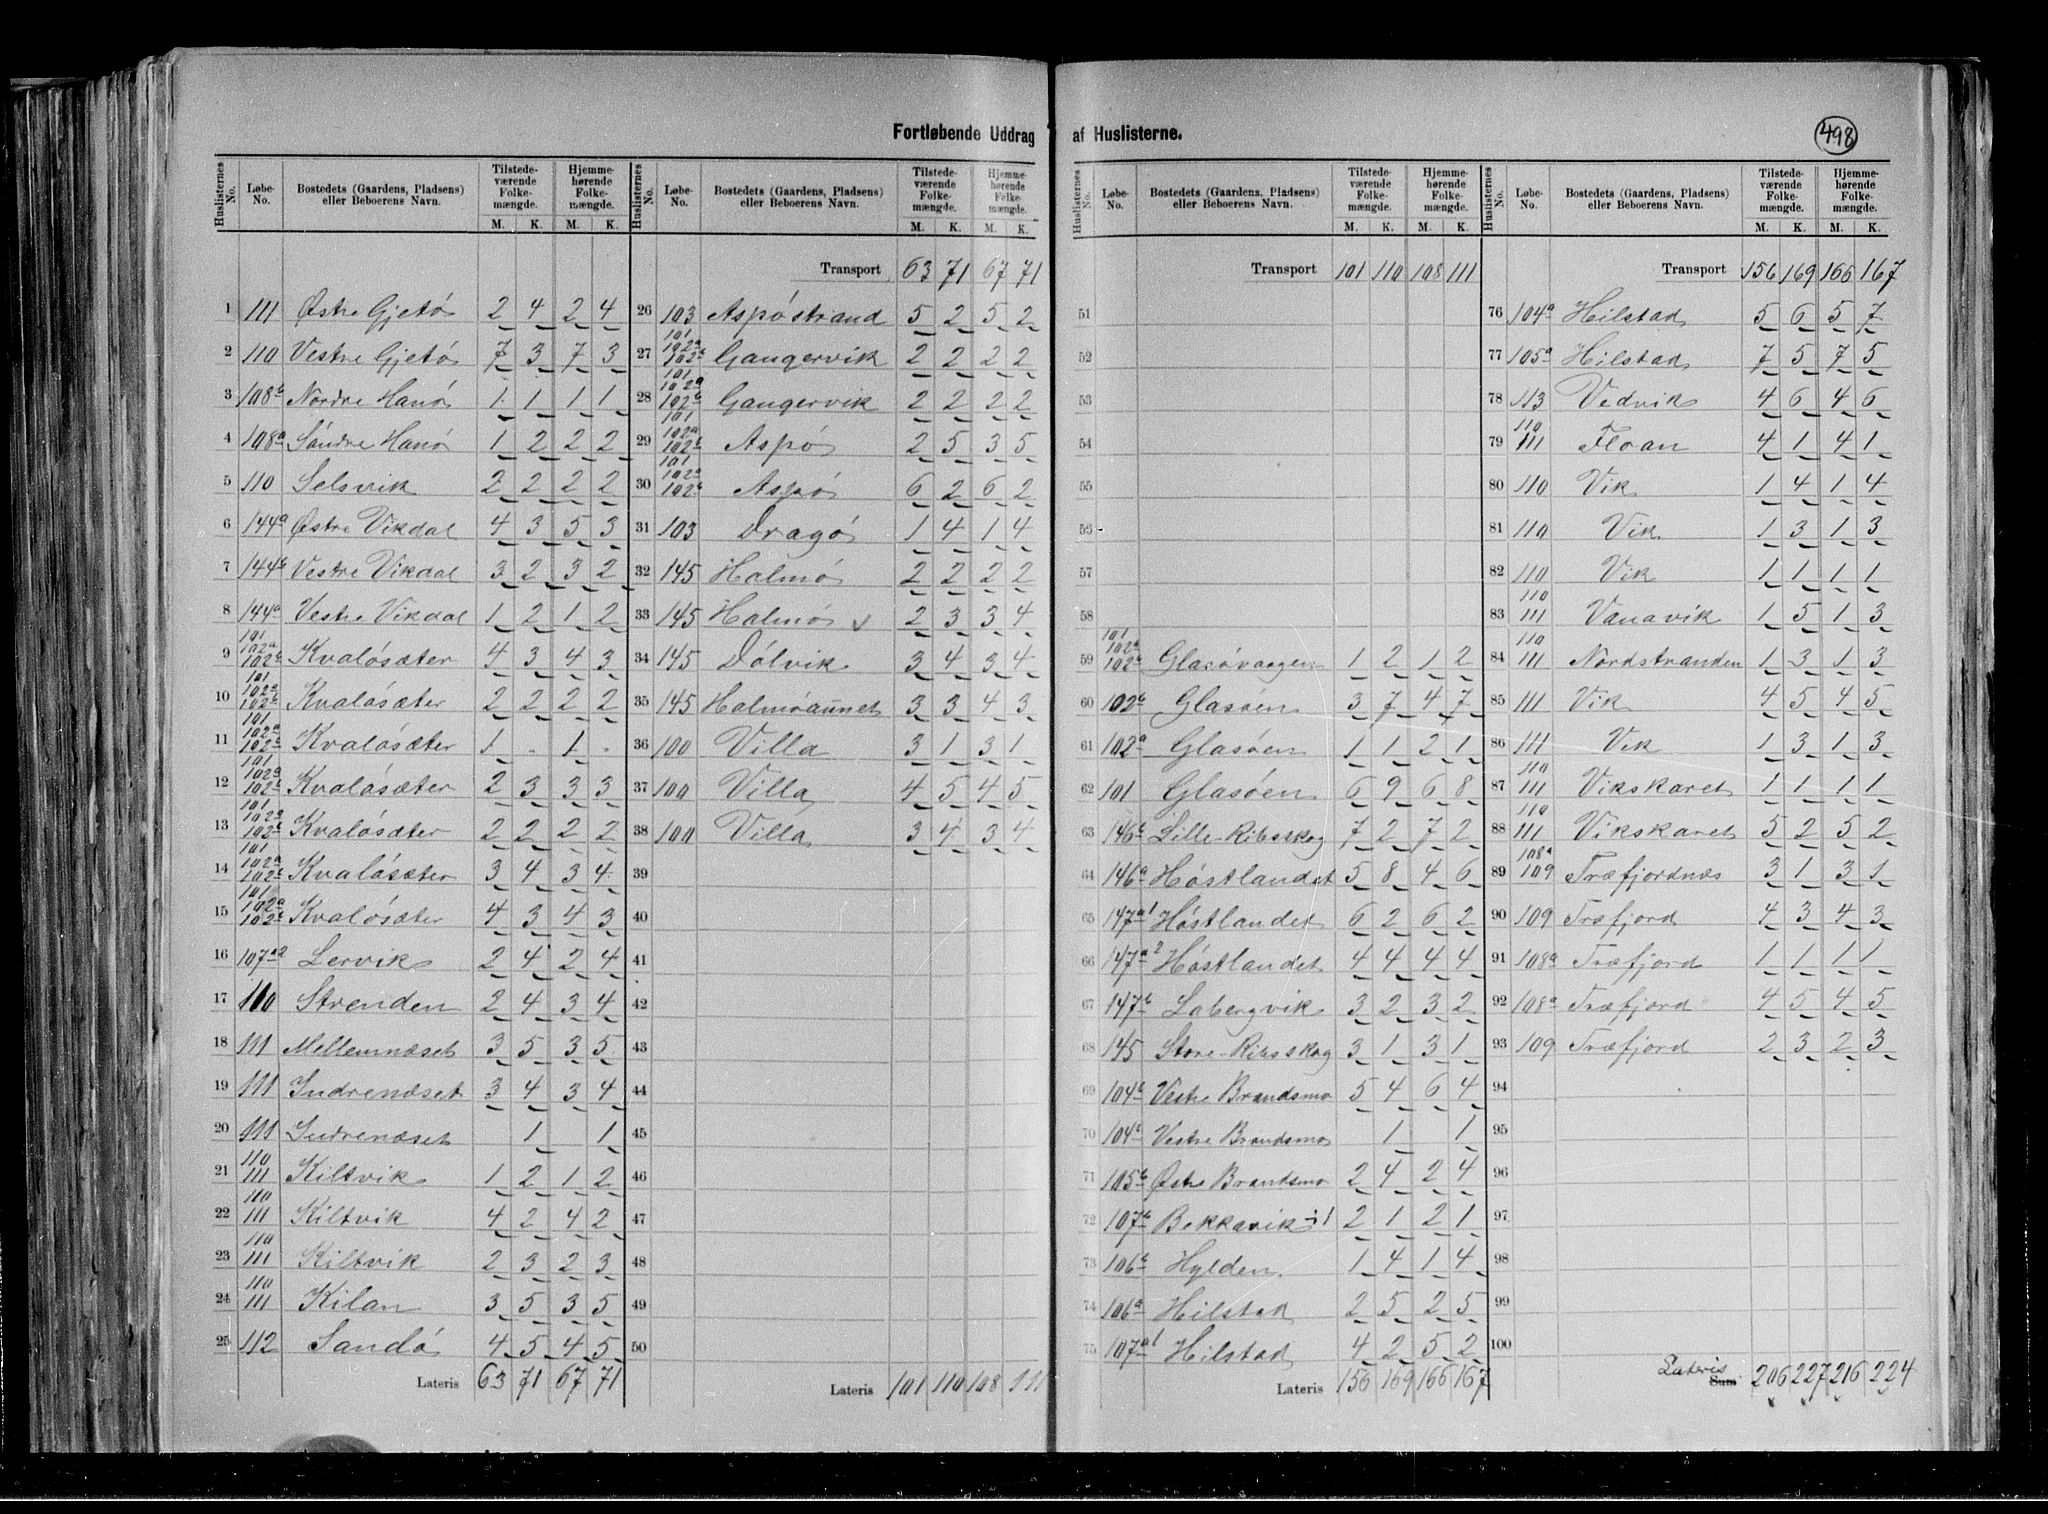 Fortløbende Uddrag af Huslisterne.
498
Huslisternes No. Løbe-No. Bostedets (Gaardens, Pladsens) eller Beboerens Navn. Tilstedeværende Folkemængde. M. K. Hjemmehørende Folkemængde. M. K.
1 111 Østre Gjetö 2 4 2 4
2 110 Vestre Gjetö 7 3 7 3
3 108b Nordre Hanö 1 1 1 1
4 108a Söndre Hanö 1 2 2 2
5 110 Selsvik 2 2 2 2
6 144a Østre Vikdal 4 3 5 3
7 144b Vestre Vikdal 3 2 3 2
8 144a Vestre Vikdal 1 2 1 2
9 101 102a 102b Kvalösæter 4 3 4 3
10 101 102a 102b Kvalösæter 2 2 2 2
11 101 102a 102b Kvalösæter 1 . 1 .
12 101 102a 102b Kvalösæter 2 3 3 3
13 101 102a 102b Kvalösæter 2 2 2 2
14 101 102a 102b Kvalösæter 3 4 3 4
15 101 102a 102b Kvalösæter 4 3 4 3
16 107a2 Lervik 2 4 2 4
17 110 Strenden 2 4 3 4
18 111 Mellemnæset 3 5 3 5
19 111 Indrenæset 3 4 3 4
20 111 Indrenæset 1 1
21 110 111 Kiltvik 1 2 1 2
22 110 111 Kiltvik 4 2 4 2
23 110 111 Kiltvik 2 3 2 3
24 110 111 Kilan 3 5 3 5
25 112 Sandö 4 5 4 5
Lateris 63 71 67 71
Huslisternes No. Løbe-No. Bostedets (Gaardens, Pladsens) eller Beboerens Navn. Tilstedeværende Folkemængde. M. K. Hjemmehørende Folkemængde. M. K.
Transport 63 71 67 71
26 103 Aspöstrand 5 2 5 2
27 101 102a 102b Gangervik 2 2 2 2
28 101 102a 102b Gangervik 2 2 2 2
29 101 102a 102b Aspö 2 5 3 5
30 101 102a 102b Aspö 6 2 6 2
31 103 Dragö 1 4 1 4
32 145 Halmö 2 2 2 2
33 145 Halmö v 2 3 3 4
34 145 Dölvik 3 4 3 4
35 145 Halmöaunet 3 3 4 3
36 100 Villa 3 1 3 1
37 100 Villa 4 5 4 5
38 100 Villa 3 4 3 4
39
40
41
42
43
44
45
46
47
48
49
50
Lateris 101 110 108 111
Huslisternes No. Løbe-No. Bostedets (Gaardens, Pladsens) eller Beboerens Navn. Tilstedeværende Folkemængde. M. K. Hjemmehørende Folkemængde. M. K.
Transport 101 110 108 111
51
52
53
54
55
56
57
58
59 101 102a 102b Glasövaagen 1 2 1 2
60 102b Glasöen 3 7 4 7
61 102a Glasöen 1 1 2 1
62 101 Glasöen 6 9 6 8
63 146b Lille-Ribsskog 7 2 7 2
64 146a Höstlandet 5 8 4 6
65 147a1 Höstlandet 6 2 6 2
66 147a2 Höstlandet 4 4 4 4
67 147b Labergvik 3 2 3 2
68 145 Store-Ribsskog 3 1 3 1
69 104b Vestre Brandsmo 5 4 6 4
70 104b Vestre Brandsmo 1 1
71 105b Østre Brandsmo 2 4 2 4
72 107b Bekkavik 2 1 2 1
73 106b Hylden 1 4 1 4
74 106a Hilstad 2 5 2 5
75 107a1 Hilstad 4 2 5 2
Lateris 156 169 166 167
Huslisternes No. Løbe-No. Bostedets (Gaardens, Pladsens) eller Beboerens Navn. Tilstedeværende Folkemængde. M. K. Hjemmehørende Folkemængde. M. K.
Transport 156 169 166 167
76 104a Hilstad 5 6 5 7
77 105a Hilstad 7 5 7 5
78 113 Vedvik 4 6 4 6
79 110 111 Floan 4 1 4 1
80 110 Vik 1 4 1 4
81 110 Vik 1 3 1 3
82 110 Vik 1 1 1 1
83 110 111 Vanavik 1 5 1 3
84 110 111 Nordstranden 1 3 1 3
85 111 Vik 4 5 4 5
86 111 Vik 1 3 1 3
87 110 111 Vikskaret 1 1 1 1
88 110 111 Vikskaret 5 2 5 2
89 108a 109 Træfjordnæs 3 1 3 1
90 109 Træfjord 4 3 4 3
91 108a Træfjord 1 1 1 1
92 108a Træfjord 4 5 4 5
93 109 Træfjord 2 3 2 3
94
95
96
97
98
99
100
Lateris
Sum 206 227 216 224